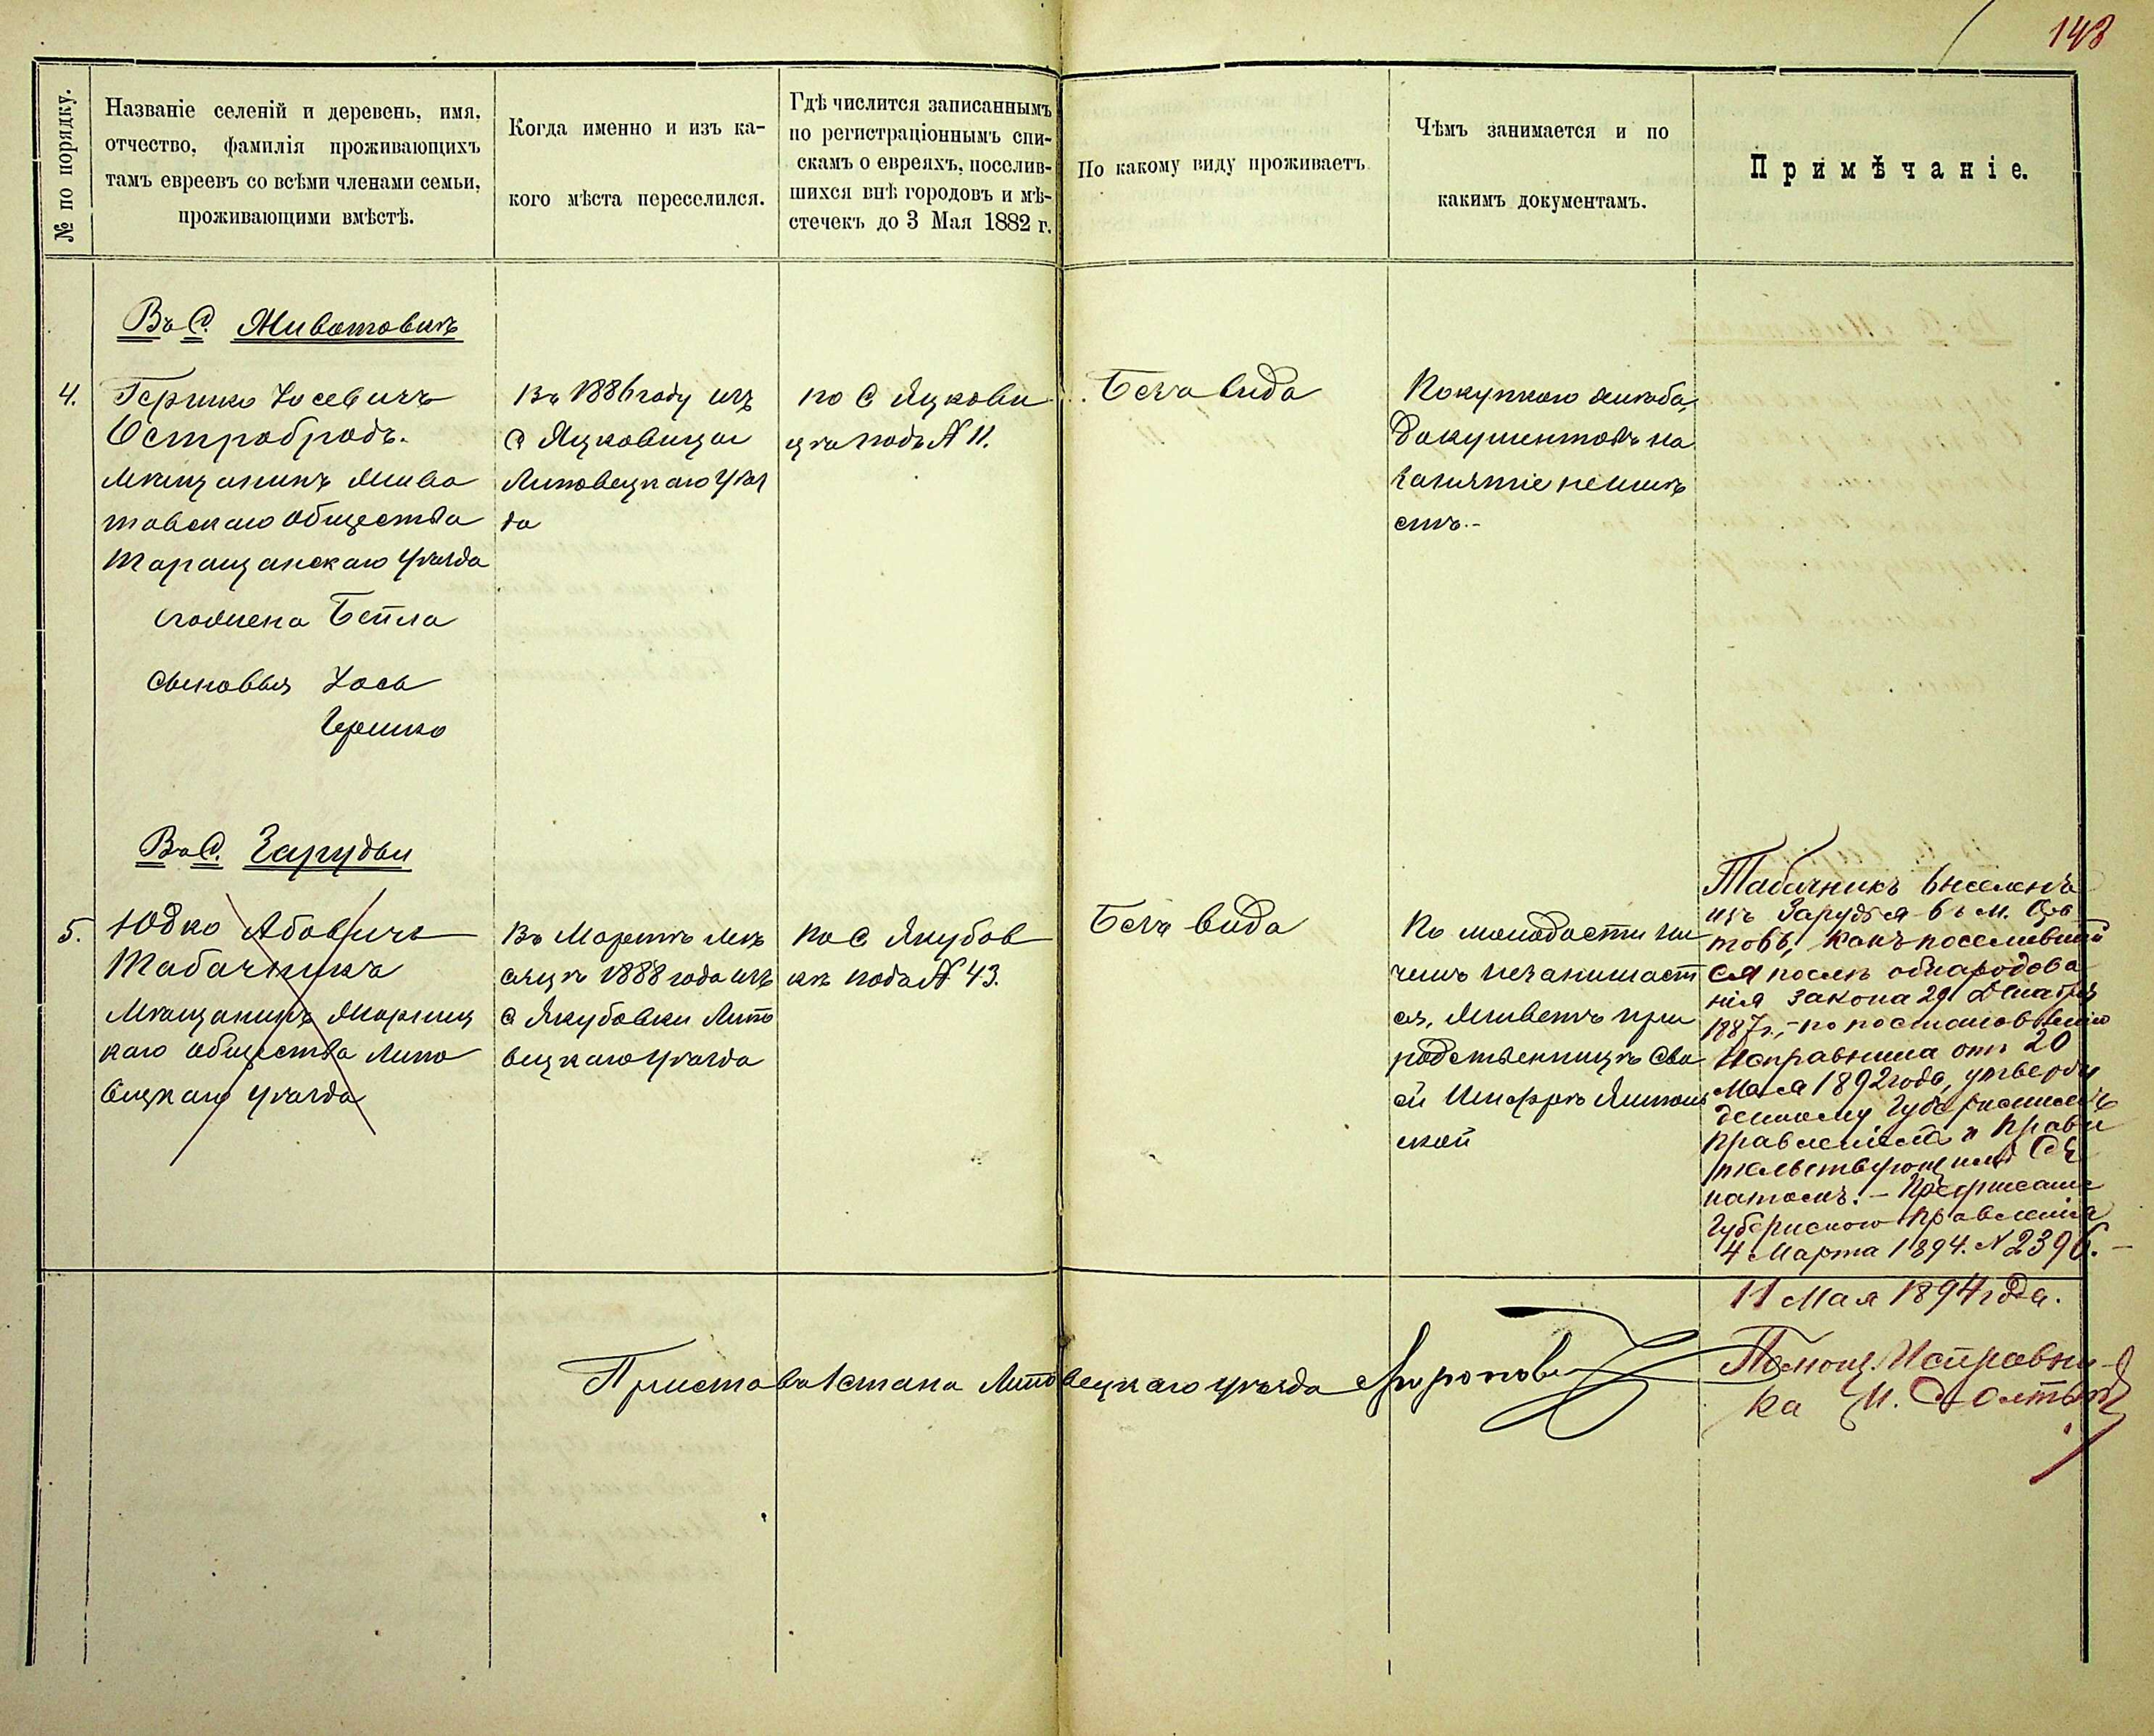 143
№ по порядку.
Названіе селеній и деревень, имя,
отчество, фамилія проживающихъ
тамъ евреевъ со всѣми членами семьи,
проживающими вмѣстѣ.
Когда именно и изъ ка-
кого мѣста переселился.
Гдѣ числится записаннымъ
по регистраціоннымъ спи-
скамъ о евреяхъ, поселив-
шихся внѣ городовъ и мѣ-
стечекъ до 3 Мая 1882 г.
По какому виду проживаетъ
Чѣмъ занимается и по
какимъ документамъ.
Примѣчаніе.
Въ С. Животовкѣ
4.
Гершко Іосевичъ
Остробродъ.
мѣщанинъ Живо
товскаго общества
Таращанскаго уѣзда
жена Бейла
сыновья Іось
Гершко
Въ 1886 году изъ
С Яцковицы
Липовецкаго Уѣз
да
по С Яцкови
цѣ подъ № 11.
Безъ вида
Покупкою хлѣба,
документовъ на
занятіе неимѣ
етъ.-
Въ С. Зарудьи
5.
Юдко Абовичъ
Табачникъ
Мѣщанинъ
каго общества Липо
вецкаго уѣзда
Въ Мартѣ мѣ
сяцѣ 1888 года изъ
С Якубовки Липо
вецкаго уѣзда
по С Якубов
кѣ подъ № 43.
Безъ вида
По молодости ни
чемъ незанимает
ся, живетъ при
родственницѣ сво
ей
ской
Табачникъ выселенъ
изъ Зарудья въ м. Ора
товъ, какъ поселивший
ся послѣ обнародова
нія закона 29 Декабря
1887 г., - по постановленію
Исправника отъ 20
Мая 1892 года, утверж
денному Губернскимъ
правленіемъ и Прави
тельствующимъ Се
натомъ. - Предписаніе
Губернскаго Правленія
4 Марта 1894. № 2396. -
11 Мая 1894 года.
Приставъ 1 стана Липовецкаго уѣзда
Помощ. Исправни-
ка